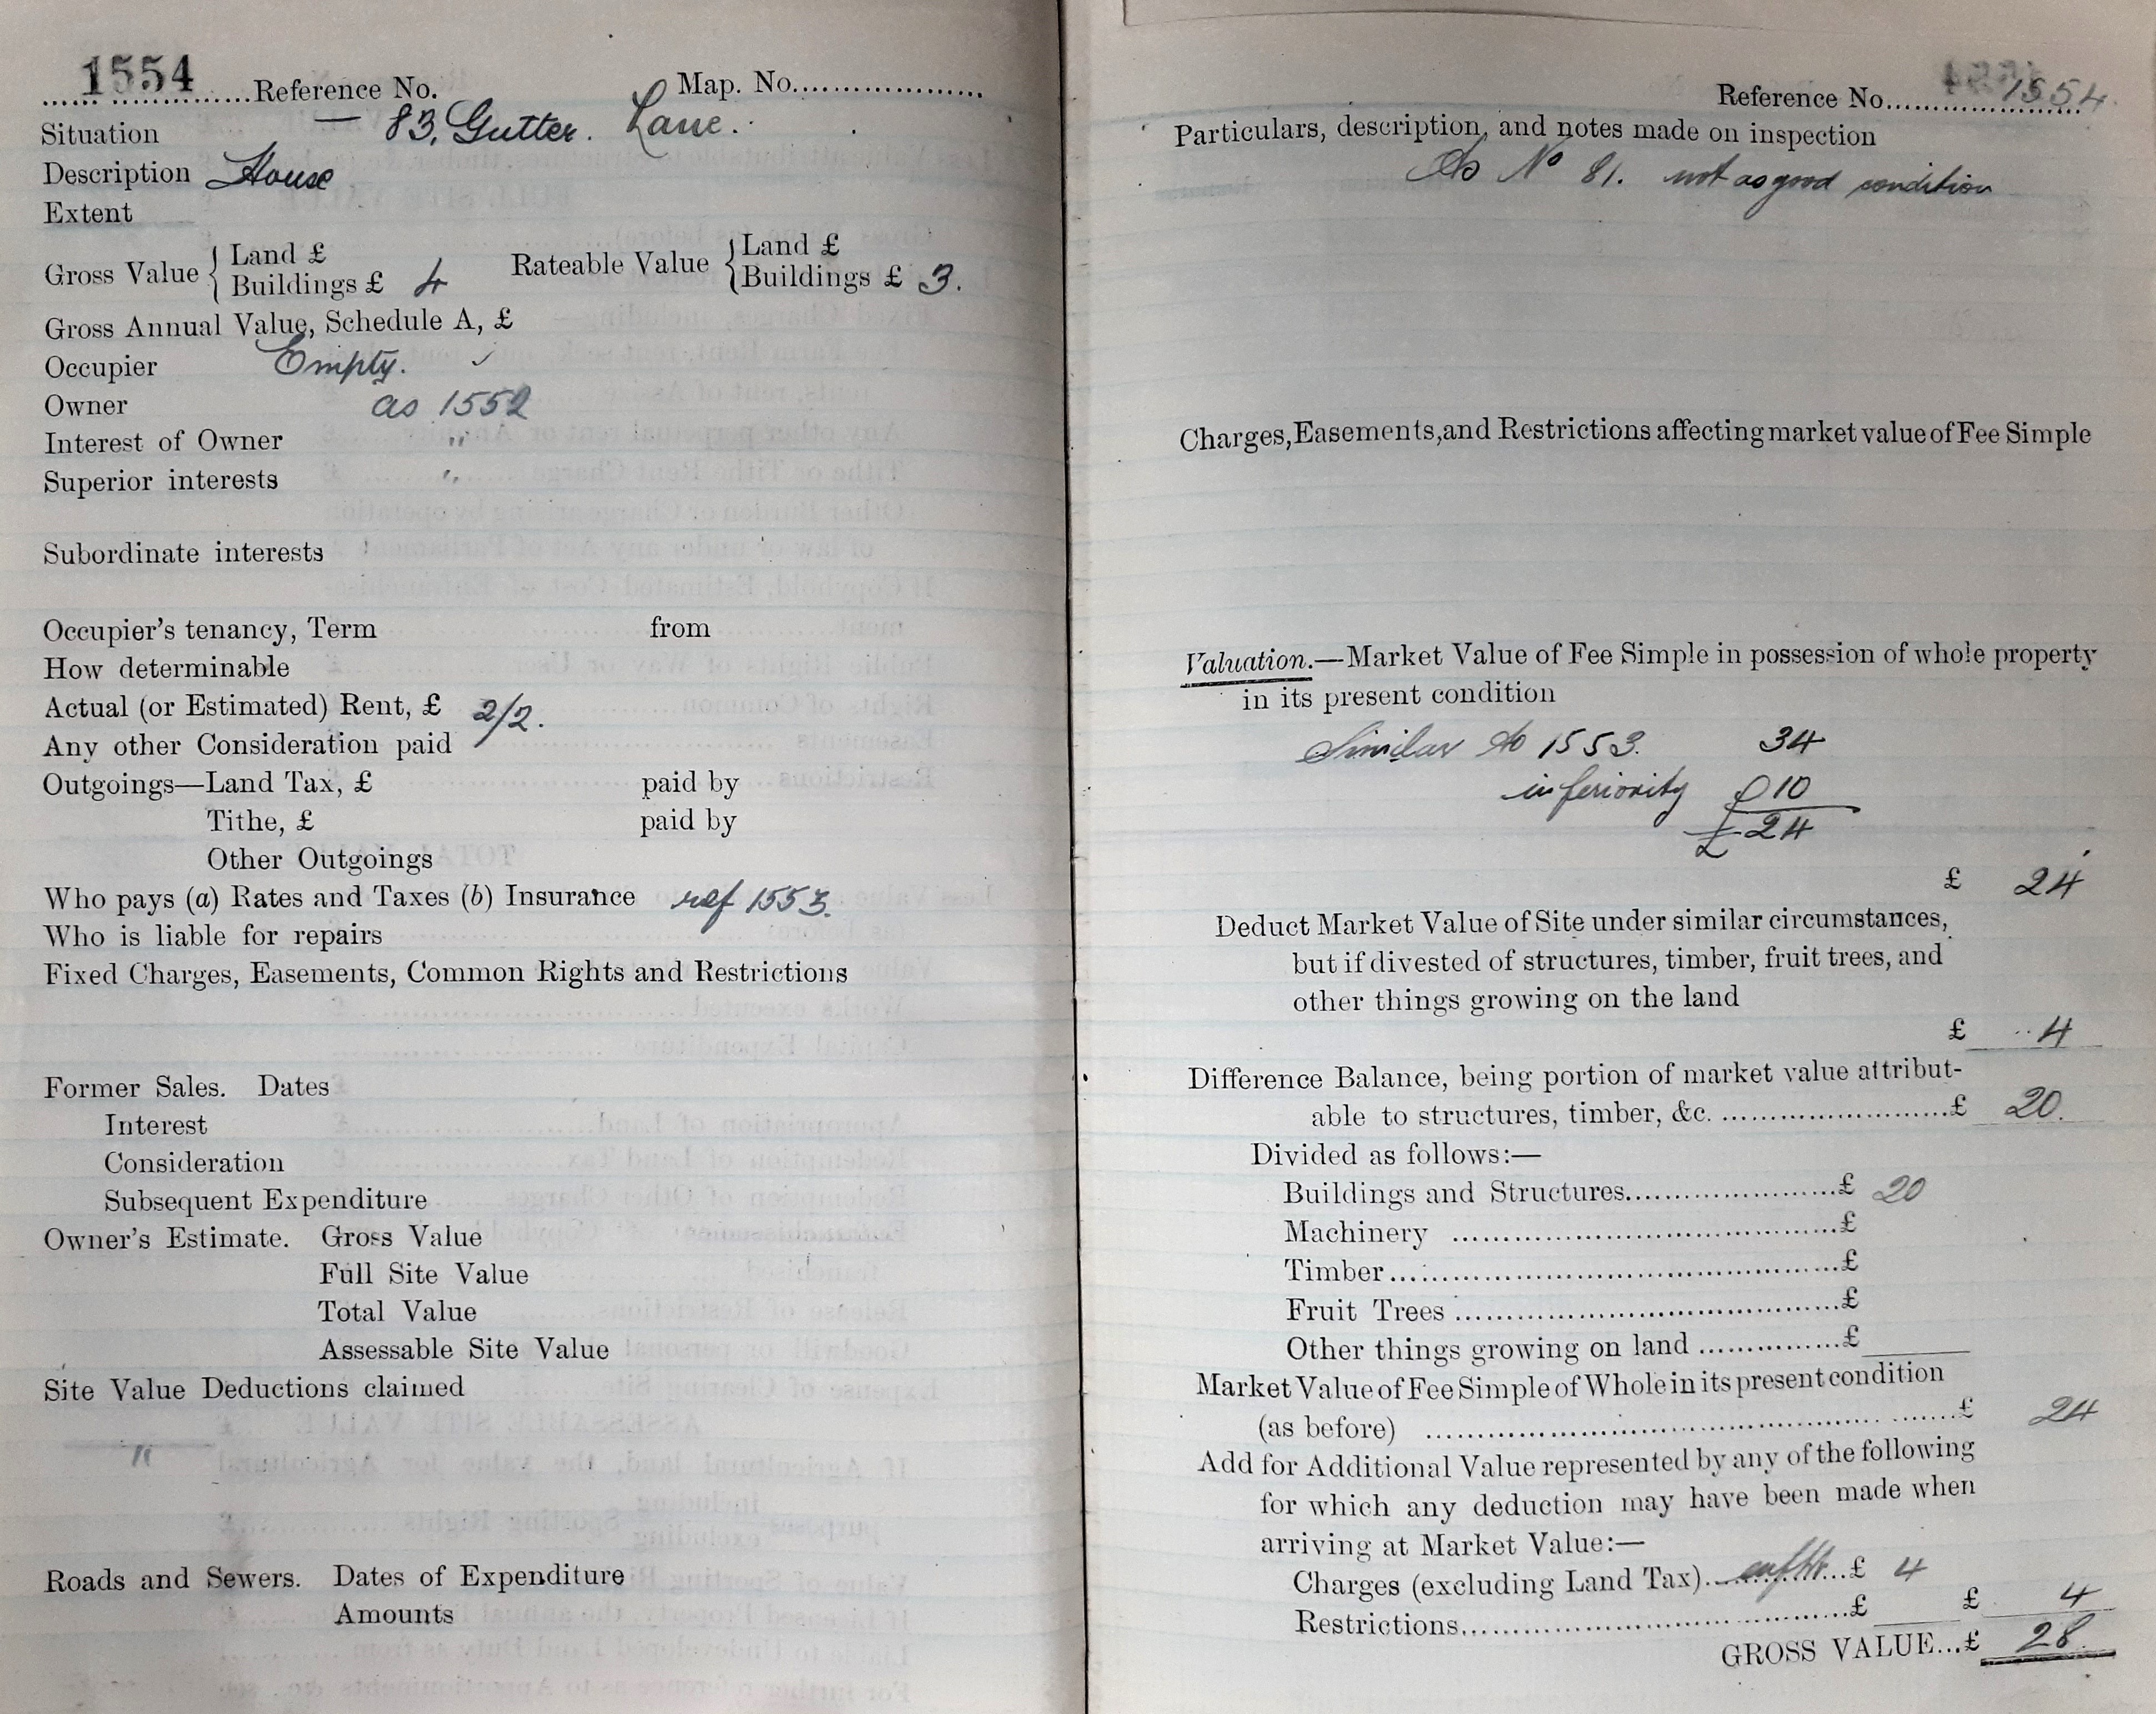 1554 Reference No. Map. No.
Situation — 83, Gutter. Lane.
Description House
Extent
Gross Value { Land £
Buildings £ 4
Rateable Value { Land £
Buildings £ 3.
Gross Annual Value, Schedule A, £
Occupier Empty.
Owner as 1552
Interest of Owner "
Superior interests "
Subordinate interests
Occupier's tenancy, Term from
How determinable
Actual (or Estimated) Rent, £ 2/2.
Any other Consideration paid
Outgoings—Land Tax, £ paid by
Tithe, £ paid by
Other Outgoings
Who pays (a) Rates and Taxes (b) Insurance ref 1553.
Who is liable for repairs
Fixed Charges, Easements, Common Rights and Restrictions
Former Sales. Dates
Interest
Consideration
Subsequent Expenditure
Owner's Estimate. Gross Value
Full Site Value
Total Value
Assessable Site Value
Site Value Deductions claimed
"
Roads and Sewers. Dates of Expenditure
Amounts
Reference No. 1554.
Particulars, description, and notes made on inspection
As No 81. not as good condition
Charges, Easements, and Restrictions affecting market value of Fee Simple
Valuation.—Market Value of Fee Simple in possession of whole property
in its present condition
Similar to 1553. 34
inferiority 10
£24
£ 24
Deduct Market Value of Site under similar circumstances,
but if divested of structures, timber, fruit trees, and
other things growing on the land
£ 4
Difference Balance, being portion of market value attribut-
able to structures, timber, &c. £ 20.
Divided as follows:—
Buildings and Structures £ 20
Machinery £
Timber £
Fruit Trees £
Other things growing on land £
Market Value of Fee Simple of Whole in its present condition
(as before) £ 24
Add for Additional Value represented by any of the following
for which any deduction may have been made when
arriving at Market Value:—
Charges (excluding Land Tax) £ 4
Restrictions £ £ 4
GROSS VALUE...£ 28.